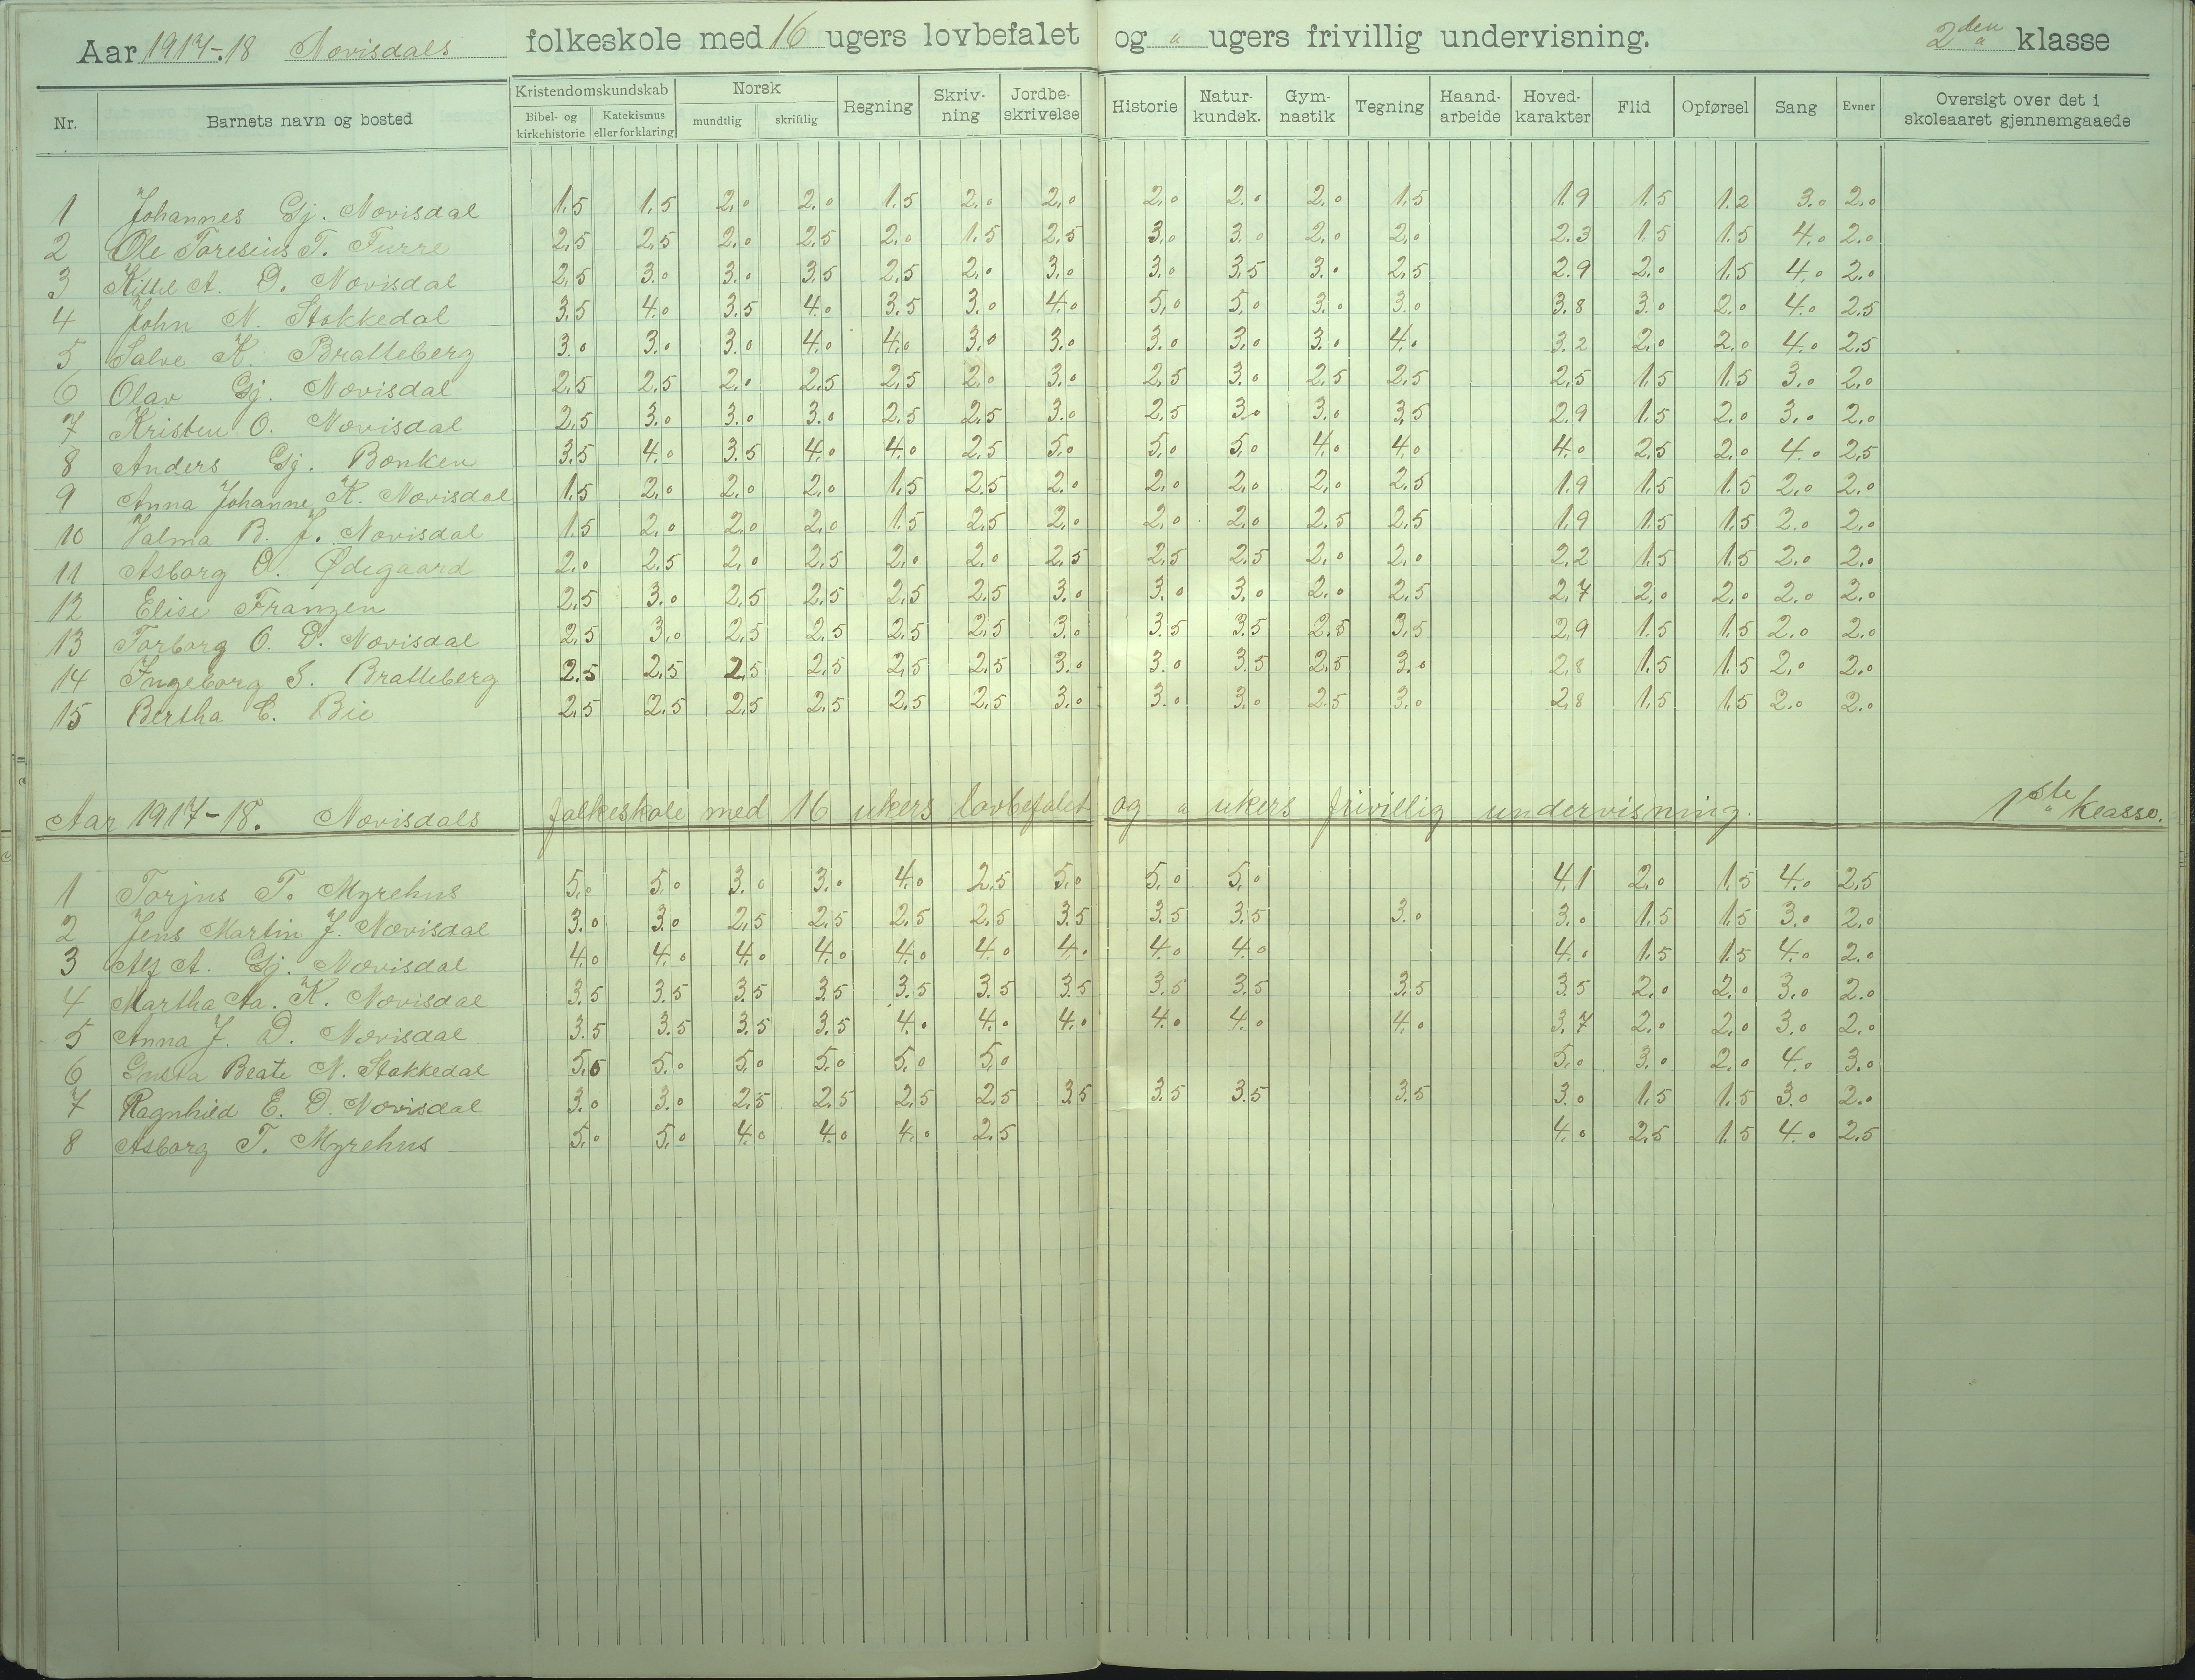 Aar 1917-18 Növisdals folkeskole med 16 ugers lovbefalet og " ugers frivillig undervisning. 2den klasse
Nr. Barnets navn og bosted Kristendomskundskab Bibel- og kirkehistorie Katekismus eller forklaring Norsk mundtlig skriftlig Regning Skriv-ning Jordbe-skrivelse Historie Natur-kundsk. Gym-nastik Tegning Haand-arbeide Hoved-karakter Flid Opførsel Sang Evner Oversigt over det i skoleaaret gjennemgaaede
1 Johannes Gj. Növisdal 1.5 1.5 2.0 2.0 1.5 2.0 2.0 2.0 2.0 2.0 1.5 1.9 1.5 1.2 3.0 2.0
2 Ole Toresius T. Furre 2.5 2.5 2.0 2.5 2.0 1.5 2.5 3.0 3.0 2.0 2.0 2.3 1.5 1.5 4.0 2.0
3 Kittel A. D. Növisdal 2.5 3.0 3.0 3.5 2.5 2.0 3.0 3.0 3.5 3.0 2.5 2.9 2.0 1.5 4.0 2.0
4 John N. Stokkedal 3.5 4.0 3.5 4.0 3.5 3.0 4.0 5.0 5.0 3.0 3.0 3.8 3.0 2.0 4.0 2.5
5 Salve K. Bratteberg 3.0 3.0 3.0 4.0 4.0 3.0 3.0 3.0 3.0 3.0 4.0 3.2 2.0 2.0 4.0 2.5
6 Olav Gj. Növisdal 2.5 2.5 2.0 2.5 2.5 2.0 3.0 2.5 3.0 2.5 2.5 2.5 1.5 1.5 3.0 2.0
7 Kristen O. Növisdal 2.5 3.0 3.0 3.0 2.5 2.5 3.0 2.5 3.0 3.0 3.5 2.9 1.5 2.0 3.0 2.0
8 Anders Gj. Bonken 3.5 4.0 3.5 4.0 4.0 2.5 5.0 5.0 5.0 4.0 4.0 4.0 2.5 2.0 4.0 2.5
9 Anna Johanne K. Növisdal 1.5 2.0 2.0 2.0 1.5 2.5 2.0 2.0 2.0 2.0 2.5 1.9 1.5 1.5 2.0 2.0
10 Valma B. J. Növisdal 1.5 2.0 2.0 2.0 1.5 2.5 2.0 2.0 2.0 2.5 2.5 1.9 1.5 1.5 2.0 2.0
11 Asborg O. Ødegaard 2.0 2.5 2.0 2.5 2.0 2.0 2.5 2.5 2.5 2.0 2.0 2.2 1.5 1.5 2.0 2.0
12 Elise Franzen 2.5 3.0 2.5 2.5 2.5 2.5 3.0 3.0 3.0 2.0 2.5 2.7 2.0 2.0 2.0 2.0
13 Torborg O. D. Növisdal 2.5 3.0 2.5 2.5 2.5 2.5 3.0 3.5 3.5 2.5 3.5 2.9 1.5 1.5 2.0 2.0
14 Ingeborg S. Bratteberg 2.5 2.5 2.5 2.5 2.5 2.5 3.0 3.0 3.5 2.5 3.0 2.8 1.5 1.5 2.0 2.0
15 Bertha C. Bie 2.5 2.5 2.5 2.5 2.5 2.5 3.0 3.0 3.0 2.5 3.0 2.8 1.5 1.5 2.0 2.0
Aar 1917-18. Növisdals folkeskole med 16 ukers lovbefalet og " ukers frivillig undervisning. 1ste klasse.
1 Torjus T. Myrehus 5.0 5.0 3.0 3.0 4.0 2.5 5.0 5.0 5.0 4.1 2.0 1.5 4.0 2.5
2 Jens Martin J. Növisdal 3.0 3.0 2.5 2.5 2.5 2.5 3.5 3.5 3.5 3.0 3.0 1.5 1.5 3.0 2.0
3 Alf A. Gj. Növisdal 4.0 4.0 4.0 4.0 4.0 4.0 4.0 4.0 4.0 4.0 1.5 1.5 4.0 2.0
4 Martha Aa. K. Növisdal 3.5 3.5 3.5 3.5 3.5 3.5 3.5 3.5 3.5 3.5 3.5 2.0 2.0 3.0 2.0
5 Anna J. D. Növisdal 3.5 3.5 3.5 3.5 4.0 4.0 4.0 4.0 4.0 4.0 3.7 2.0 2.0 3.0 2.0
6 Gusta Beate N. Stokkedal 5.0 5.0 5.0 5.0 5.0 5.0 5.0 3.0 2.0 4.0 3.0
7 Ragnhild E. D. Növisdal 3.0 3.0 2.5 2.5 2.5 2.5 3.5 3.5 3.5 3.5 3.0 1.5 1.5 3.0 2.0
8 Asborg T. Myrehus 5.0 5.0 4.0 4.0 4.0 2.5 4.0 2.5 1.5 4.0 2.5